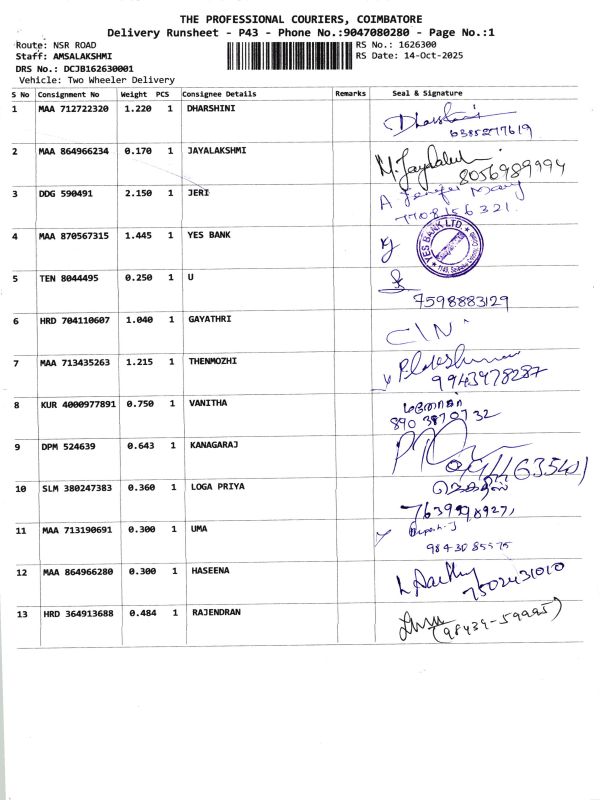 THE PROFESSIONAL COURIERS, COIMBATORE
Delivery Runsheet - P43 - Phone No.:9047080280 - Page No.:1
Route: NSR ROAD
RS No.: 1626300
Staff: AMSALAKSHMI
RS Date: 14-Oct-2025
DRS No.: DCJB162630001
Vehicle: Two Wheeler Delivery
S No Consignment No Weight PCS Consignee Details Remarks Seal & Signature
1 MAA 712722320 1.220 1 DHARSHINI Dharshini
6385277619
2 MAA 864966234 0.170 1 JAYALAKSHMI M. Jayalakshmi
8056989994
3 DDG 590491 2.150 1 JERI A Jenifer Mary
7708156321.
4 MAA 870567315 1.445 1 YES BANK
YES BANK LTD
5 TEN 8044495 0.250 1 U
7598883129
6 HRD 704110607 1.040 1 GAYATHRI
7 MAA 713435263 1.215 1 THENMOZHI
9943978287
8 KUR 4000977891 0.750 1 VANITHA மனோகர்
890 3870732
9 DPM 524639 0.643 1 KANAGARAJ
10 SLM 380247383 0.360 1 LOGA PRIYA
7639998927,
11 MAA 713190691 0.300 1 UMA
9843085575
12 MAA 864966280 0.300 1 HASEENA
7502431010
13 HRD 364913688 0.484 1 RAJENDRAN
(98439-59995)